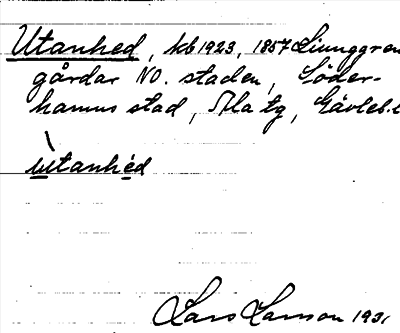 Utanhed, kb 1923, 1857 Ljunggren
gårdar NO. staden, Söder-
hamns stad, Ala tg, Gävleb. l
utanhèd
Lars Larsson 1931